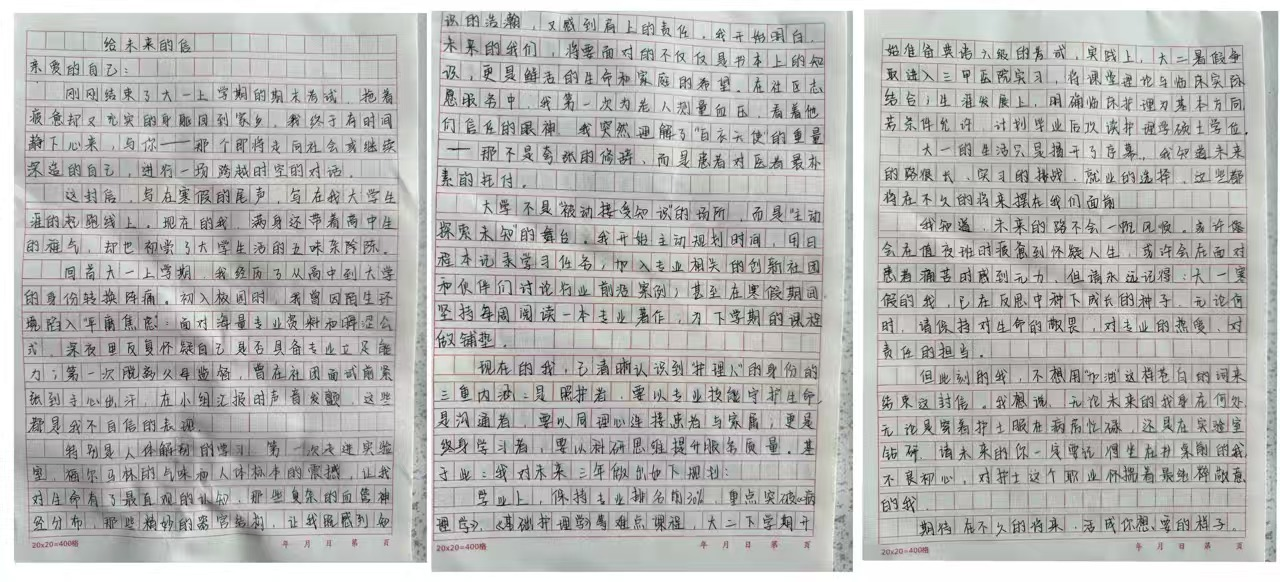 给未来的信
亲爱的自己：
刚刚结束了大一上学期的期末考试，拖着
疲惫却又充实的身躯回到家乡，我终于有时间
静下心来，与你——那个即将走向社会或继续
深造的自己，进行一场跨越时空的对话。
这封信，写在寒假的尾声，写在我大学生
涯的起跑线上。现在的我，满身还带着高中生
的稚气，却也初尝了大学生活的五味杂陈。
回首大一上学期，我经历了从高中到大学
的身份转换阵痛。初入校园时，我曾因陌生环
境陷入"年廂焦虑：面对海量专业资料和晦涩公
式，深夜里反复怀疑自己是否具备专业立足能
力；第一次脱离父母监督，曾在社团面试前紧
张到手心出汗，在小组汇报时声音发颤，这些
都是我不自信的表现。
特别是人体解剖的学习，第一次走进实验
室，福尔马林的气味和人体标本的震撼，让我
对生命有了最直观的认知，那些复杂的血管神
经分布，那些精妙的器官结构，让我既感到知
20×20=400格 年 月 日 第 页
识的浩瀚，又感到肩上的责任。我开始明白，
未来的我们，将要面对的不仅仅是书本上的知
识，更是鲜活的生命和家庭的希望。在社区志
愿服务中，我第一次为老人测量血压，看着他
们信任的眼神，我突然理解了"白衣天使"的重量
——那不是夸张的修辞，而是患者对医者最朴
素的托付。
大学不是"被动接受知识"的场所，而是"主动
探索未知"的舞台。我开始主动规划时间，用日
程本记录学习任务；加入专业相关的创新社团
和伙伴们讨论行业前沿案例；甚至在寒假期间，
坚持每周阅读一本专业著作，为下学期的课程
做铺垫。
现在的我，已清晰认识到"护理人"的身份的
三重内涵：是照护者，要以专业技能守护生命，
是沟通者，要以同理心连接患者与家属；更是
终身学习者，要以科研思维提升服务质量。基
于此：我对未来三年做出如下规划：
学业上，保持专业排名前30%，重点突破《病
理学》、《基础护理学》等难点课程，大二下学期开
年 月 日 第 页
20×20=400格
始准备英语六级的考试，实践上，大二暑假争
取进入三甲医院实习，将课堂理论与临床实际
结合；生涯发展上，明确临床护理为基本方向
若条件允许，计划毕业后攻读护理学硕士学位。
大一的生活只是揭开了序幕，我知道未来
的路很长，学习的挑战，就业的选择，这些都
将在不久的将来摆在我们面前
我知道，未来的路不会一帆风顺。或许您
会在值夜班时疲惫到怀疑人生，或许会在面对
患者痛苦时感到无力，但请永远记得：大一寒
假的我，已在反思中种下成长的种子，无论何
时，请保持对生命的敬畏，对专业的热爱，对
责任的担当。
但此刻的我，不想用"加油"这样苍白的词来
结束这封信。我想说，无论未来的我身在何处
无论是穿着护士服在病房忙碌，还是在实验室
钻研，请未来的你一定要记得坐在书桌前的我，
不畏初心，对护士这个职业怀揣着最纯粹敬意
的我。
期待在不久的将来，活成你想要的样子。
20×20=400格 年 月 日 第 页